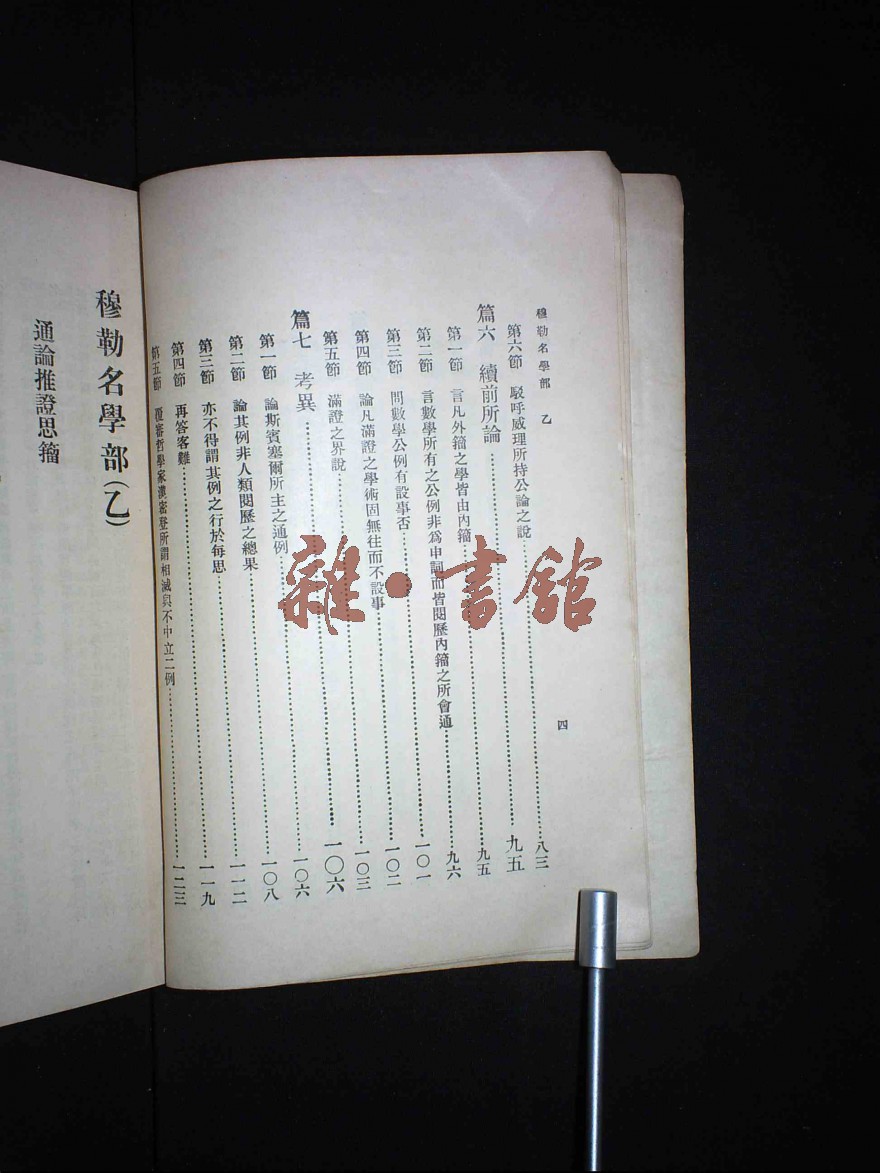 穆勒名學部 乙
四
第六節 駁呼威理所持公論之說……八三
篇六 續前所論……九五
第一節 言凡外籀之學皆由內籀……九五
第二節 言數學所有之公例非為申詞而皆閱歷內籀之所會通……九六
第三節 問數學公例有設事否……一〇一
第四節 論凡滿證之學術固無往而不設事……一〇二
第五節 滿證之界說……一〇三
篇七 考異……一〇六
第一節 論斯賓塞爾所主之通例……一〇六
第二節 論其例非人類閱歷之總果……一〇八
第三節 亦不得謂其例之行於每思……一一二
第四節 再答客難……一一九
第五節 覆審哲學家漢密登所謂相滅與不中立二例……一二三
穆勒名學部(乙)
通論推證思籀
雜·書館